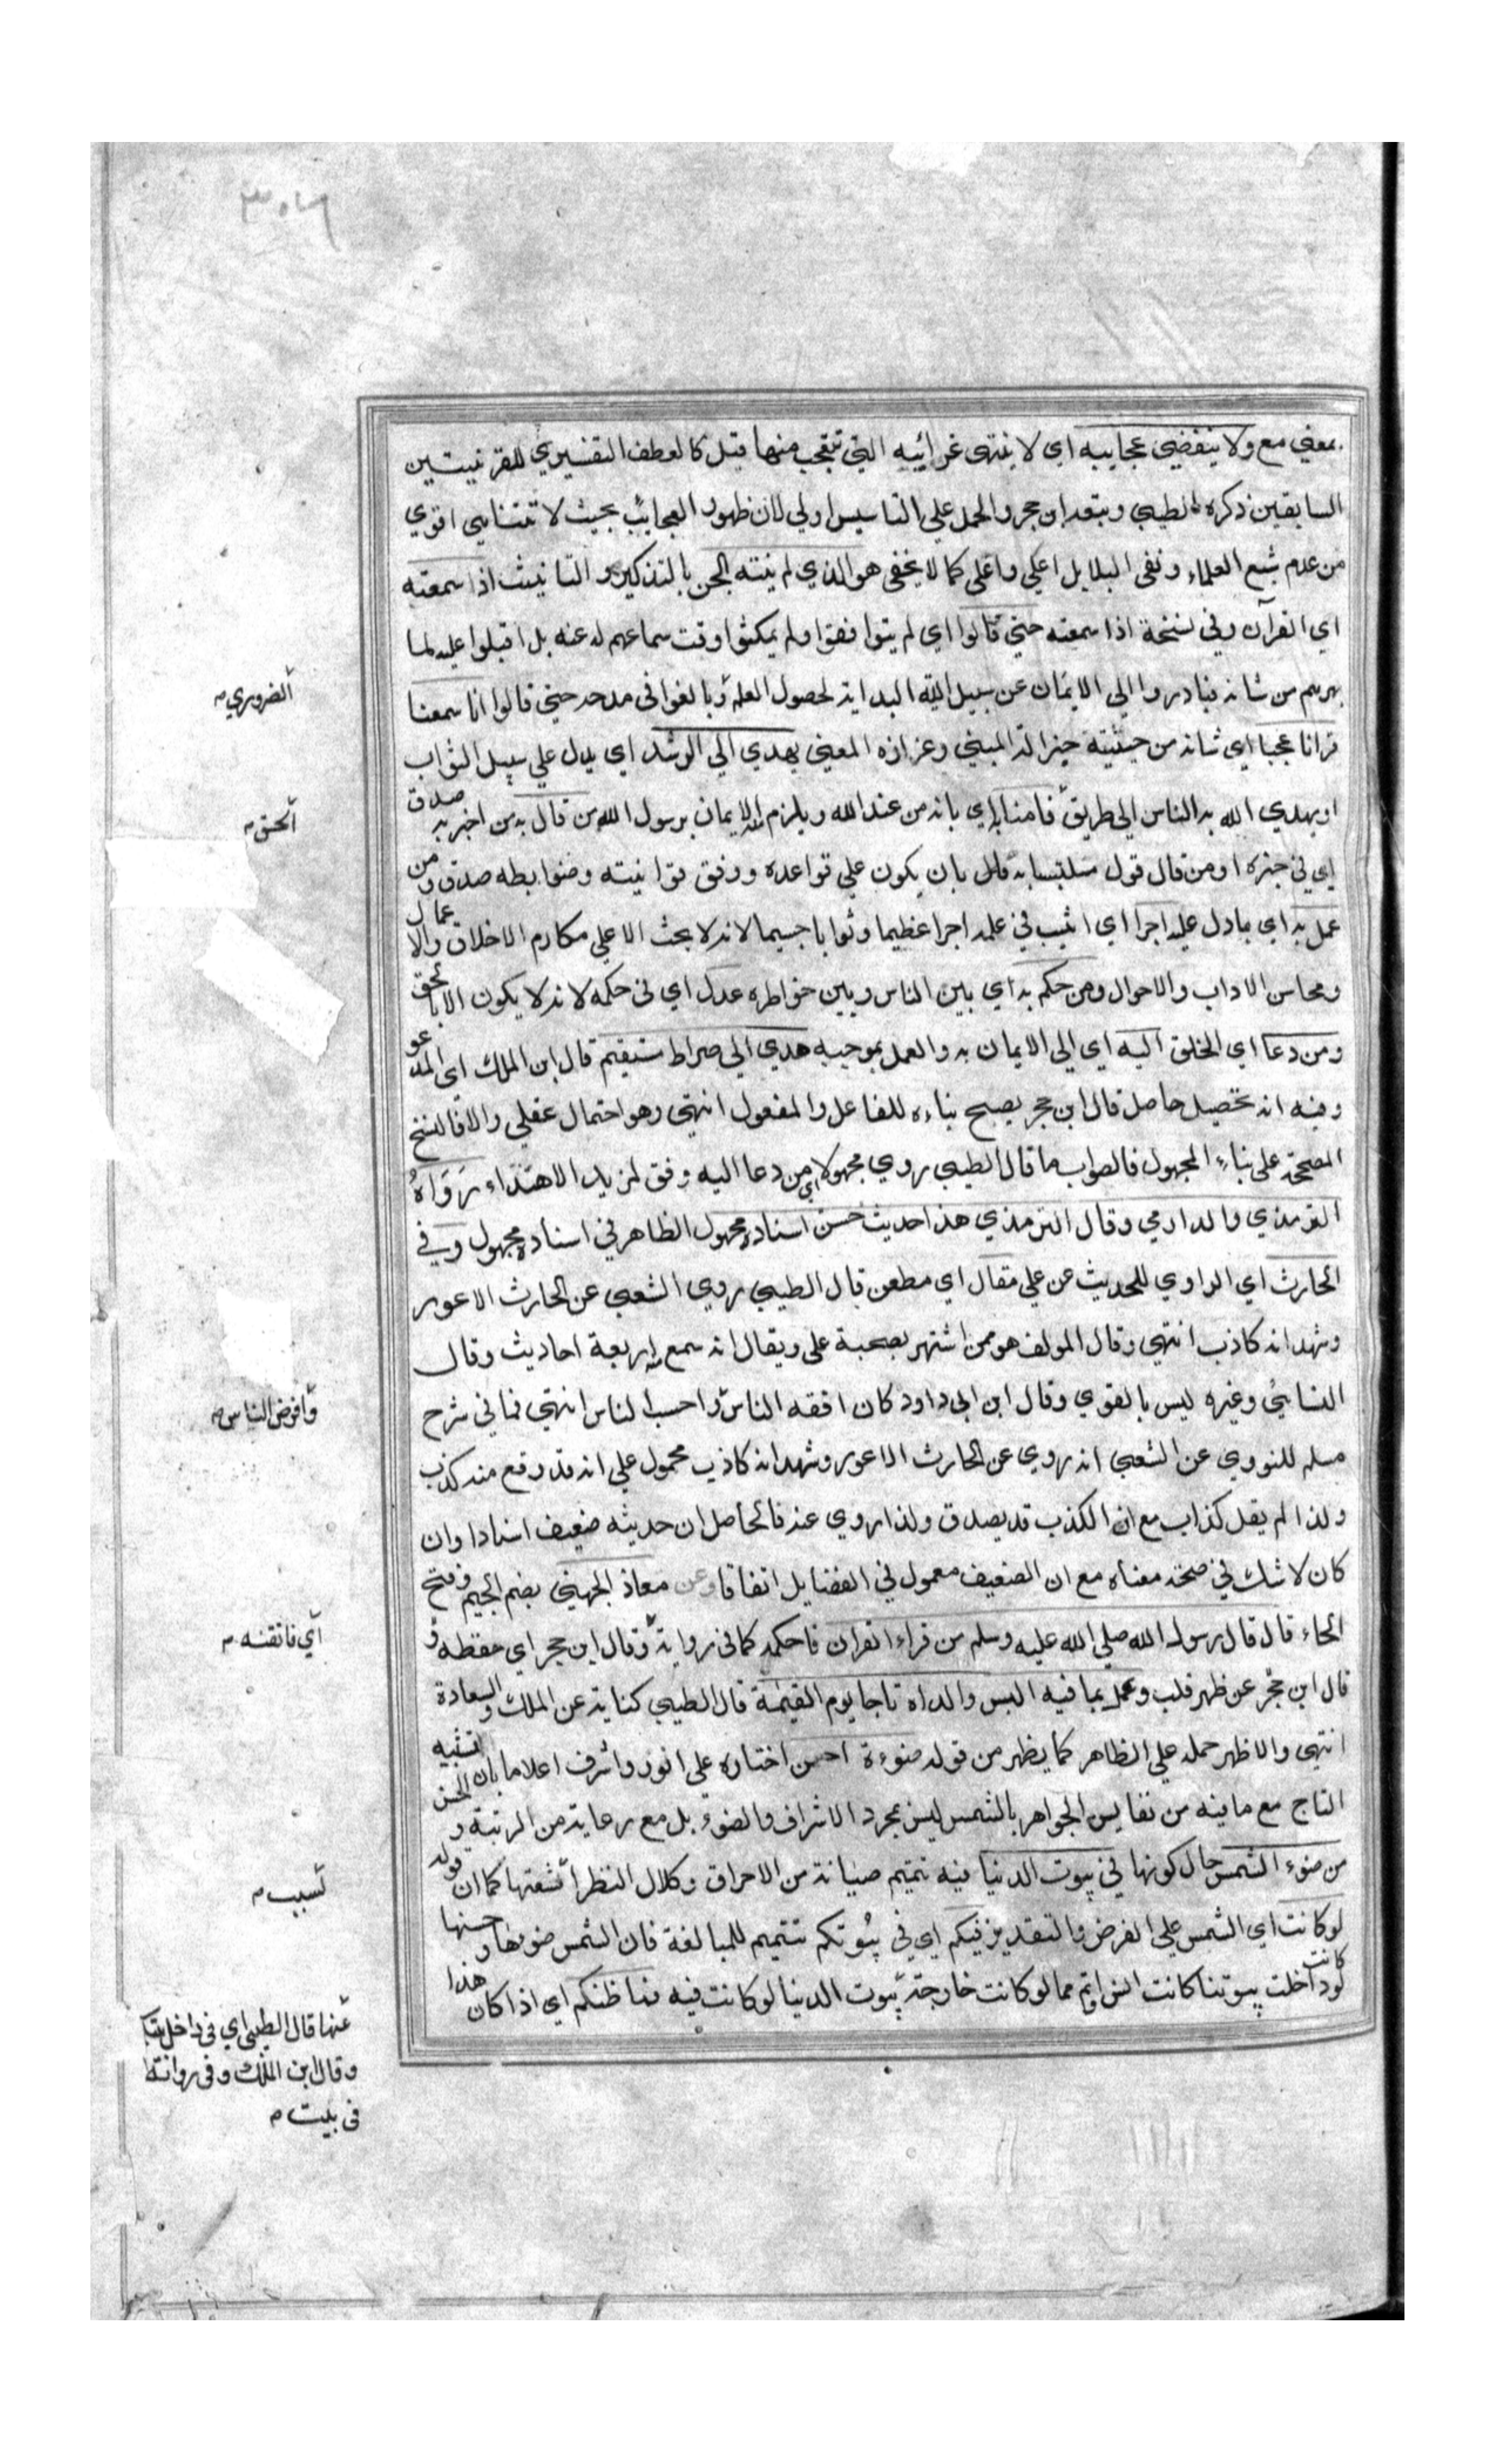 بمعني مع ولا ينقضي عجايبه اي لا ينتهي غرائبه التي تتعجب منها قيل كالعطف التفسيري للقرينتين
السابقين ذكره الطيبي وتبعه ابن حجر والحمل علي التاسيس اولي لان ظهور العجائب بحيث لا تتناهي اقوي
من عدم شبع العلماء ونفي البلا بل اعلي واغلي كما لا يخفي هو الذي لم ينته الجن بالتذكير والتانيث اذا سمعته
اي القرآن وفي نسخة اذا سمعته حتي قالوا اي لم يتوافقوا ولم يمكثوا وقت سماعهم له عنه بل اقبلوا عليه لما
بهرهم من شانه فبادروا الي الايمان عن سبيل البداية لحصول العلم وبالغوا في مدحه حتي قالوا انا سمعنا
قرانا عجبا اي شانه من حيثية جزالة المبني وعزازه المعني يهدي الي الرشد اي يدل علي سبيل الثواب
او يهدي الله به الناس الي طريق فامنا به اي بانه من عند الله ويلزم الايمان برسول الله من قال به من اخبر به صدق
اي في خبره او من قال قول متلبسا به قال بان يكون علي قواعده ووفق قوانينه وضوابطه صدق ومن
عمل به اي بما دل عليه اجرا اي اثيب في عمله اجرا عظيما وثوابا جسيما لانه لا يحث الا علي مكارم الاخلاق والاعمال
ومحاسن الاداب والاحوال ومن حكم به اي بين الناس وبين خواطره عدل اي في حكمه لانه لا يكون الا بالحق
ومن دعا اي الخلق اليه اي الي الايمان به والعمل بموجبه هدي الي صراط مستقيم قال ابن الملك اي المدعو
وفيه انه تحصيل حاصل قال ابن حجر يصح بناءه للفاعل والمفعول انتهي وهو احتمال عقلي والا فالنسخ
المصححة علي بناء المجهول فالصواب ما قال الطيبي روي مجهولا اي من دعا اليه وفق لمزيد الاهتداء رَوَاهُ
الترمذي والدارمي وقال الترمذي هذا حديث حسن اسناده مجهول الظاهر في اسناده مجهول وفي
الحارث اي الراوي للحديث عن علي مقال اي مطعن قال الطيبي روي الشعبي عن الحارث الاعور
وشهد انه كاذب انتهي وقال المولف هو ممن اشتهر بصحبة علي ويقال انه سمع منه اربعة احاديث وقال
النسائي وغيره ليس بالقوي وقال ابن ابي داود كان افقه الناس واحسب الناس انتهي فما في شرح
مسلم للنووي عن الشعبي انه روي عن الحارث الاعور وشهد انه كاذب محمول علي انه قد وقع منه كذب
ولذا لم يقل كذاب مع ان الكذب قد يصدق ولذا روي عنه فالحاصل ان حديثه ضعيف اسنادا وان
كان لا شك في صحة معناه مع ان الضعيف معمول في الفضايل اتفاقا وعن معاذ الجهني بضم الجيم وفتح
الحاء قال قال رسول الله صلي الله عليه وسلم من قراء القران فاحكمه كما في رواية وقال ابن حجر اي حفظه و
قال ابن حجر عن ظهر قلب وعمل بما فيه البس والداه تاجا يوم القيمة قال الطيبي كناية عن الملك والسعادة
انتهي والاظهر حمله علي الظاهر كما يظهر من قوله ضوءه احسن اختاره علي انور واشرف اعلاما بان تشبيه
التاج مع ما فيه من نفايس الجواهر بالشمس ليس بمجرد الاشراف والضوء بل مع رعاية من الرتبة والحسن
من ضوء الشمس حال كونها في بيوت الدنيا فيه تتميم صيانة من الاحراق وكلال النظر اشعتها كما ان قوله
لو كانت اي الشمس علي الفرض والتقدير فيكم اي في بيُوتكم تتميم للمبالغة فان الشمس ضوءها وحسنها
لو كانت داخلت بيوتنا كانت انس واتم مما لو كانت خارجة بيوت الدنيا لو كانت فيه فما ظنكم اي اذا كان هذا
الضروري م
الحق م
وافرض الناس م
اي فاتقنه م
تسبب م
عنها قال الطيبي اي في داخل
وقال ابن الملك وفي رواية
في بيت م